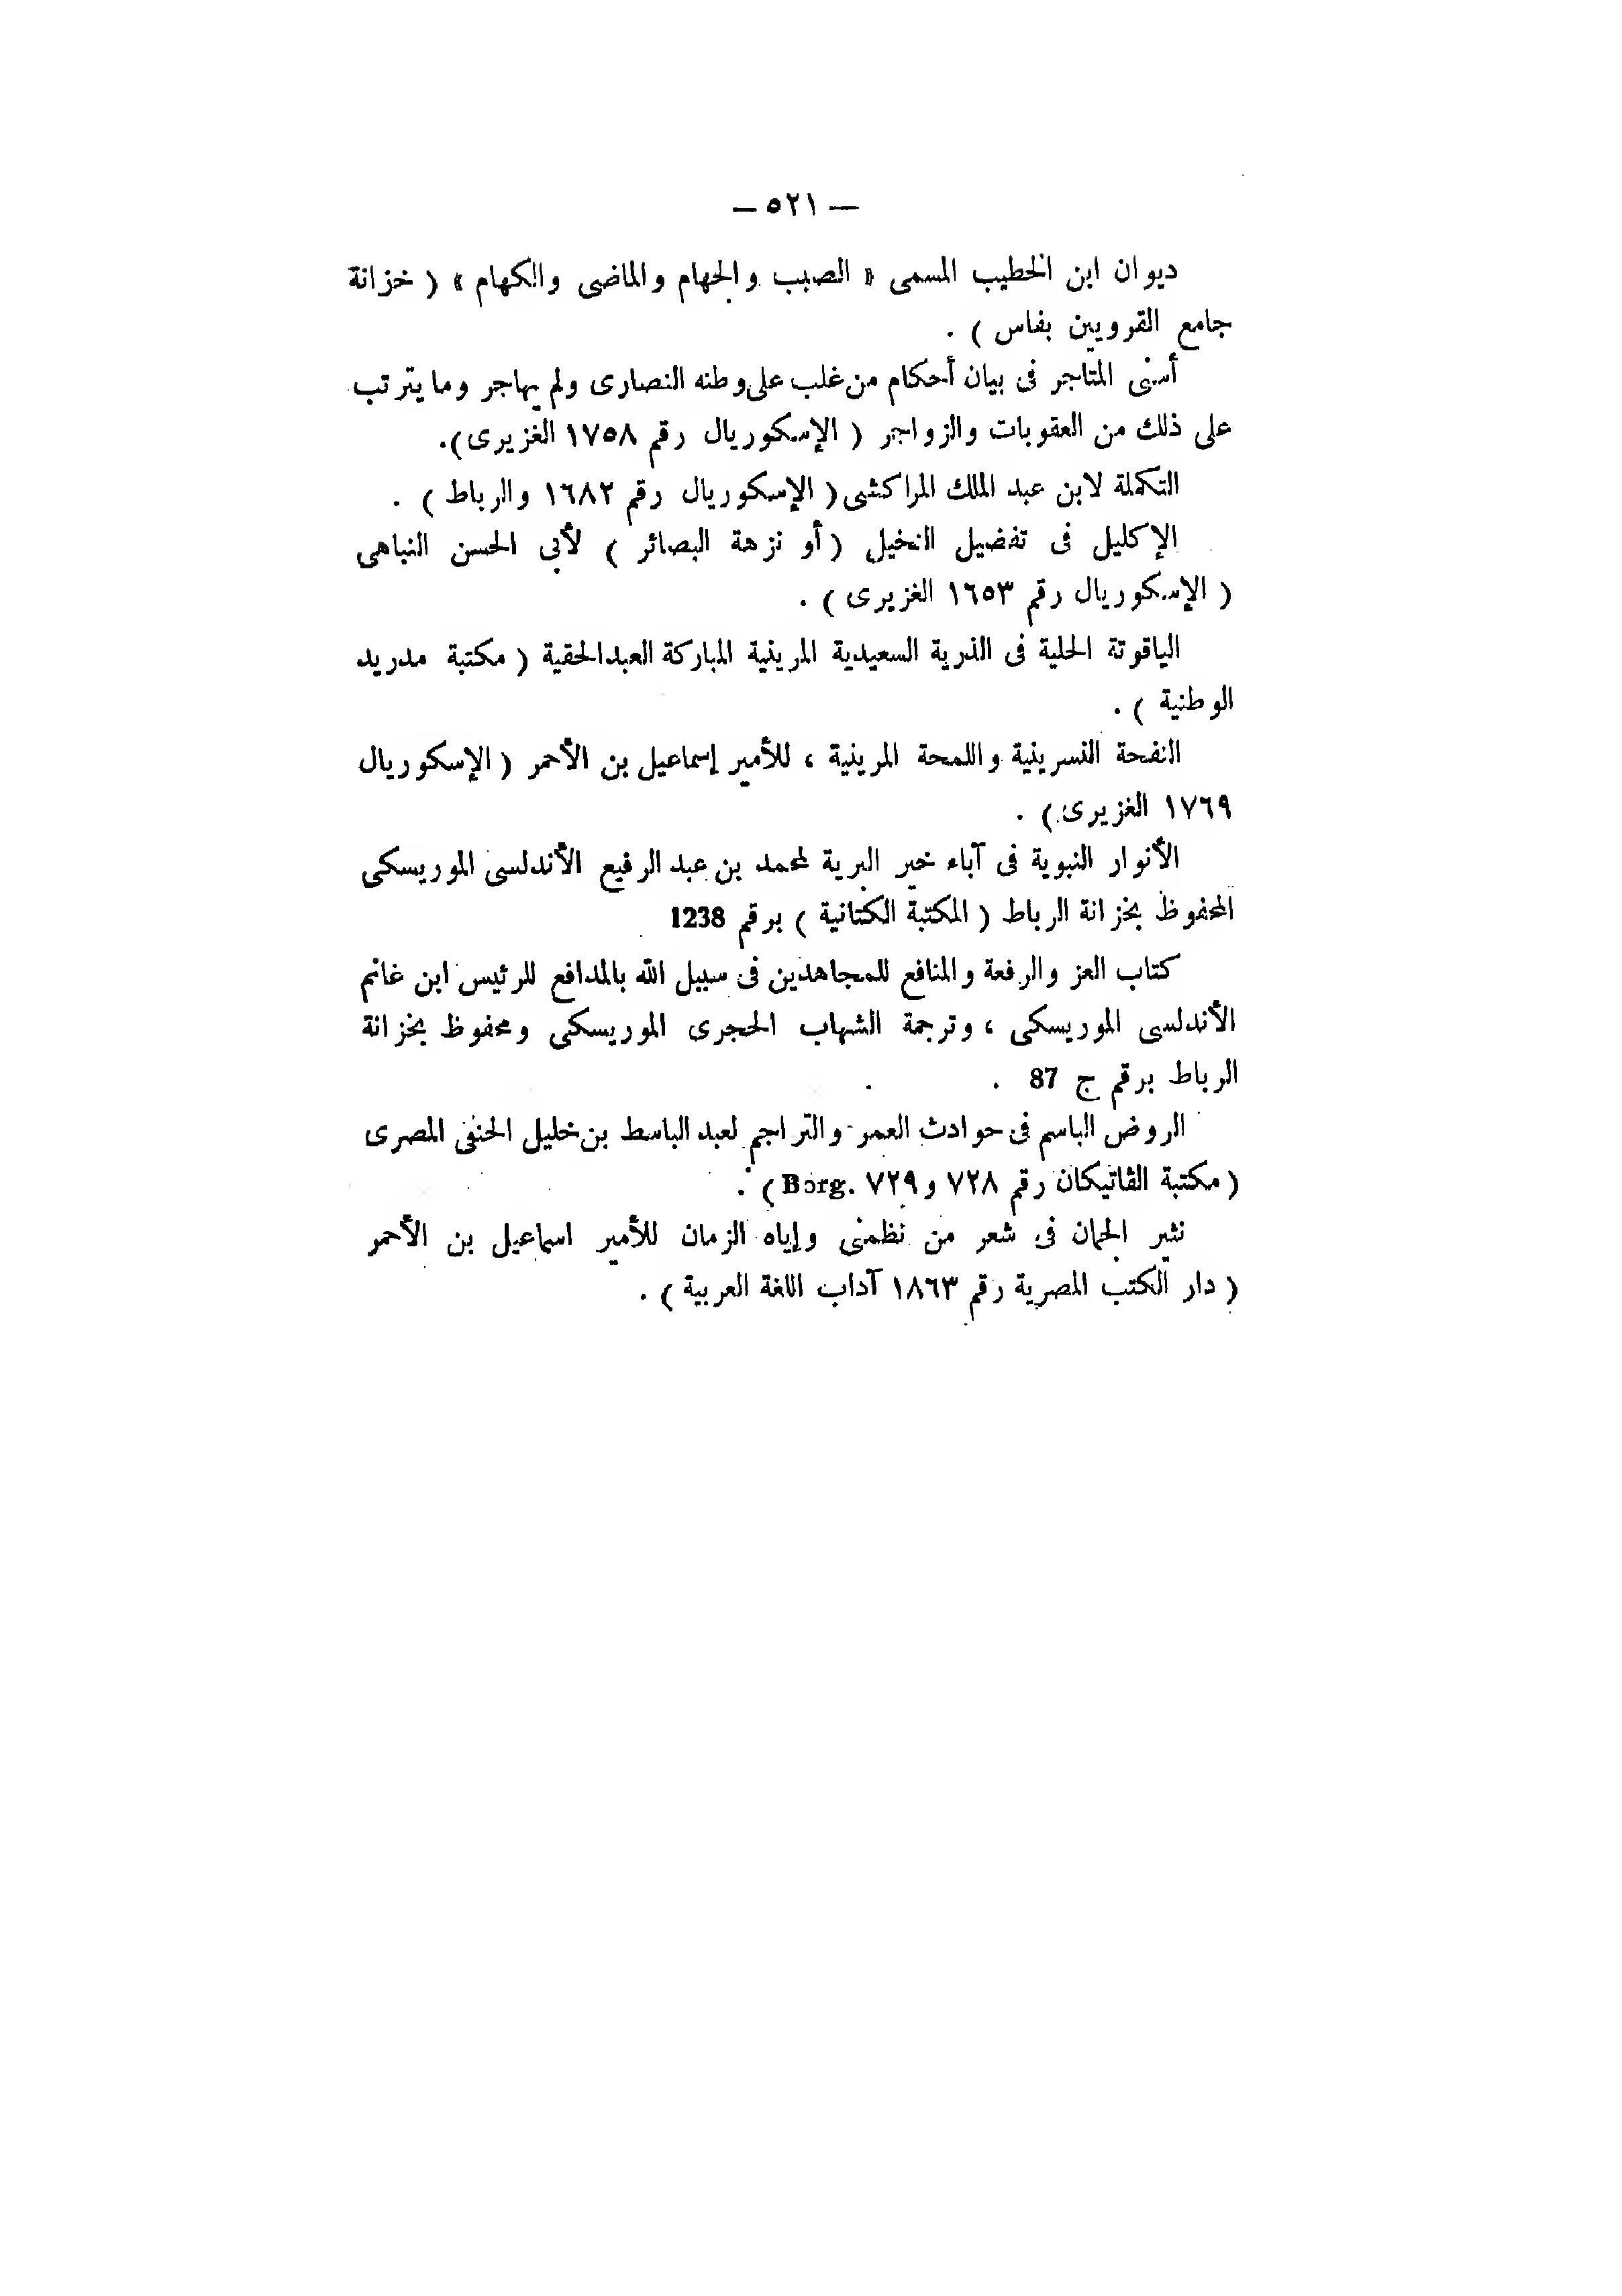 — ٥٢١ —
ديوان ابن الخطيب المسمى « الصبب والجهام والماضى والكهام » ( خزانة
جامع القرويين بفاس ) .
أسنى المتاجر فى بيان أحكام من غلب على وطنه النصارى ولم يهاجر وما يترتب
على ذلك من العقوبات والزواجر ( الإسكوريال رقم ١٧٥٨ الغزيرى).
التكملة لابن عبد الملك المراكشى ( الإسكوريال رقم ١٦٨٢ والرباط ) .
الإكليل فى تفضيل النخيل ( أو نزهة البصائر ) لأبى الحسن النباهى
( الإسكوريال رقم ١٦٥٣ الغزيرى ) .
الياقوتة الحلية فى الذرية السعيدية المرينية المباركة العبدالحقية ( مكتبة مدريد
الوطنية ) .
النفحة النسرينية واللمحة المرينية ، للأمير إسماعيل بن الأحمر ( الإسكوريال
١٧٦٩ الغزيرى ) .
الأنوار النبوية فى آباء خير البرية لمحمد بن عبد الرفيع الأندلسى الموريسكى
المحفوظ بخزانة الرباط ( المكتبة الكتانية ) برقم 1238
كتاب العز والرفعة والمنافع للمجاهدين فى سبيل الله بالمدافع للرئيس ابن غانم
الأندلسى الموريسكى ، وترجمة الشهاب الحجرى الموريسكى ومحفوظ بخزانة
الرباط برقم ج 87 .
الروض الباسم فى حوادث العمر والتراجم لعبد الباسط بن خليل الحنفى المصرى
( مكتبة الڤاتيكان رقم ٧٢٨ و ٧٢٩ Borg. ) .
نثير الجمان فى شعر من نظمنى وإياه الزمان للأمير اسماعيل بن الأحمر
( دار الكتب المصرية رقم ١٨٦٣ آداب اللغة العربية ) .